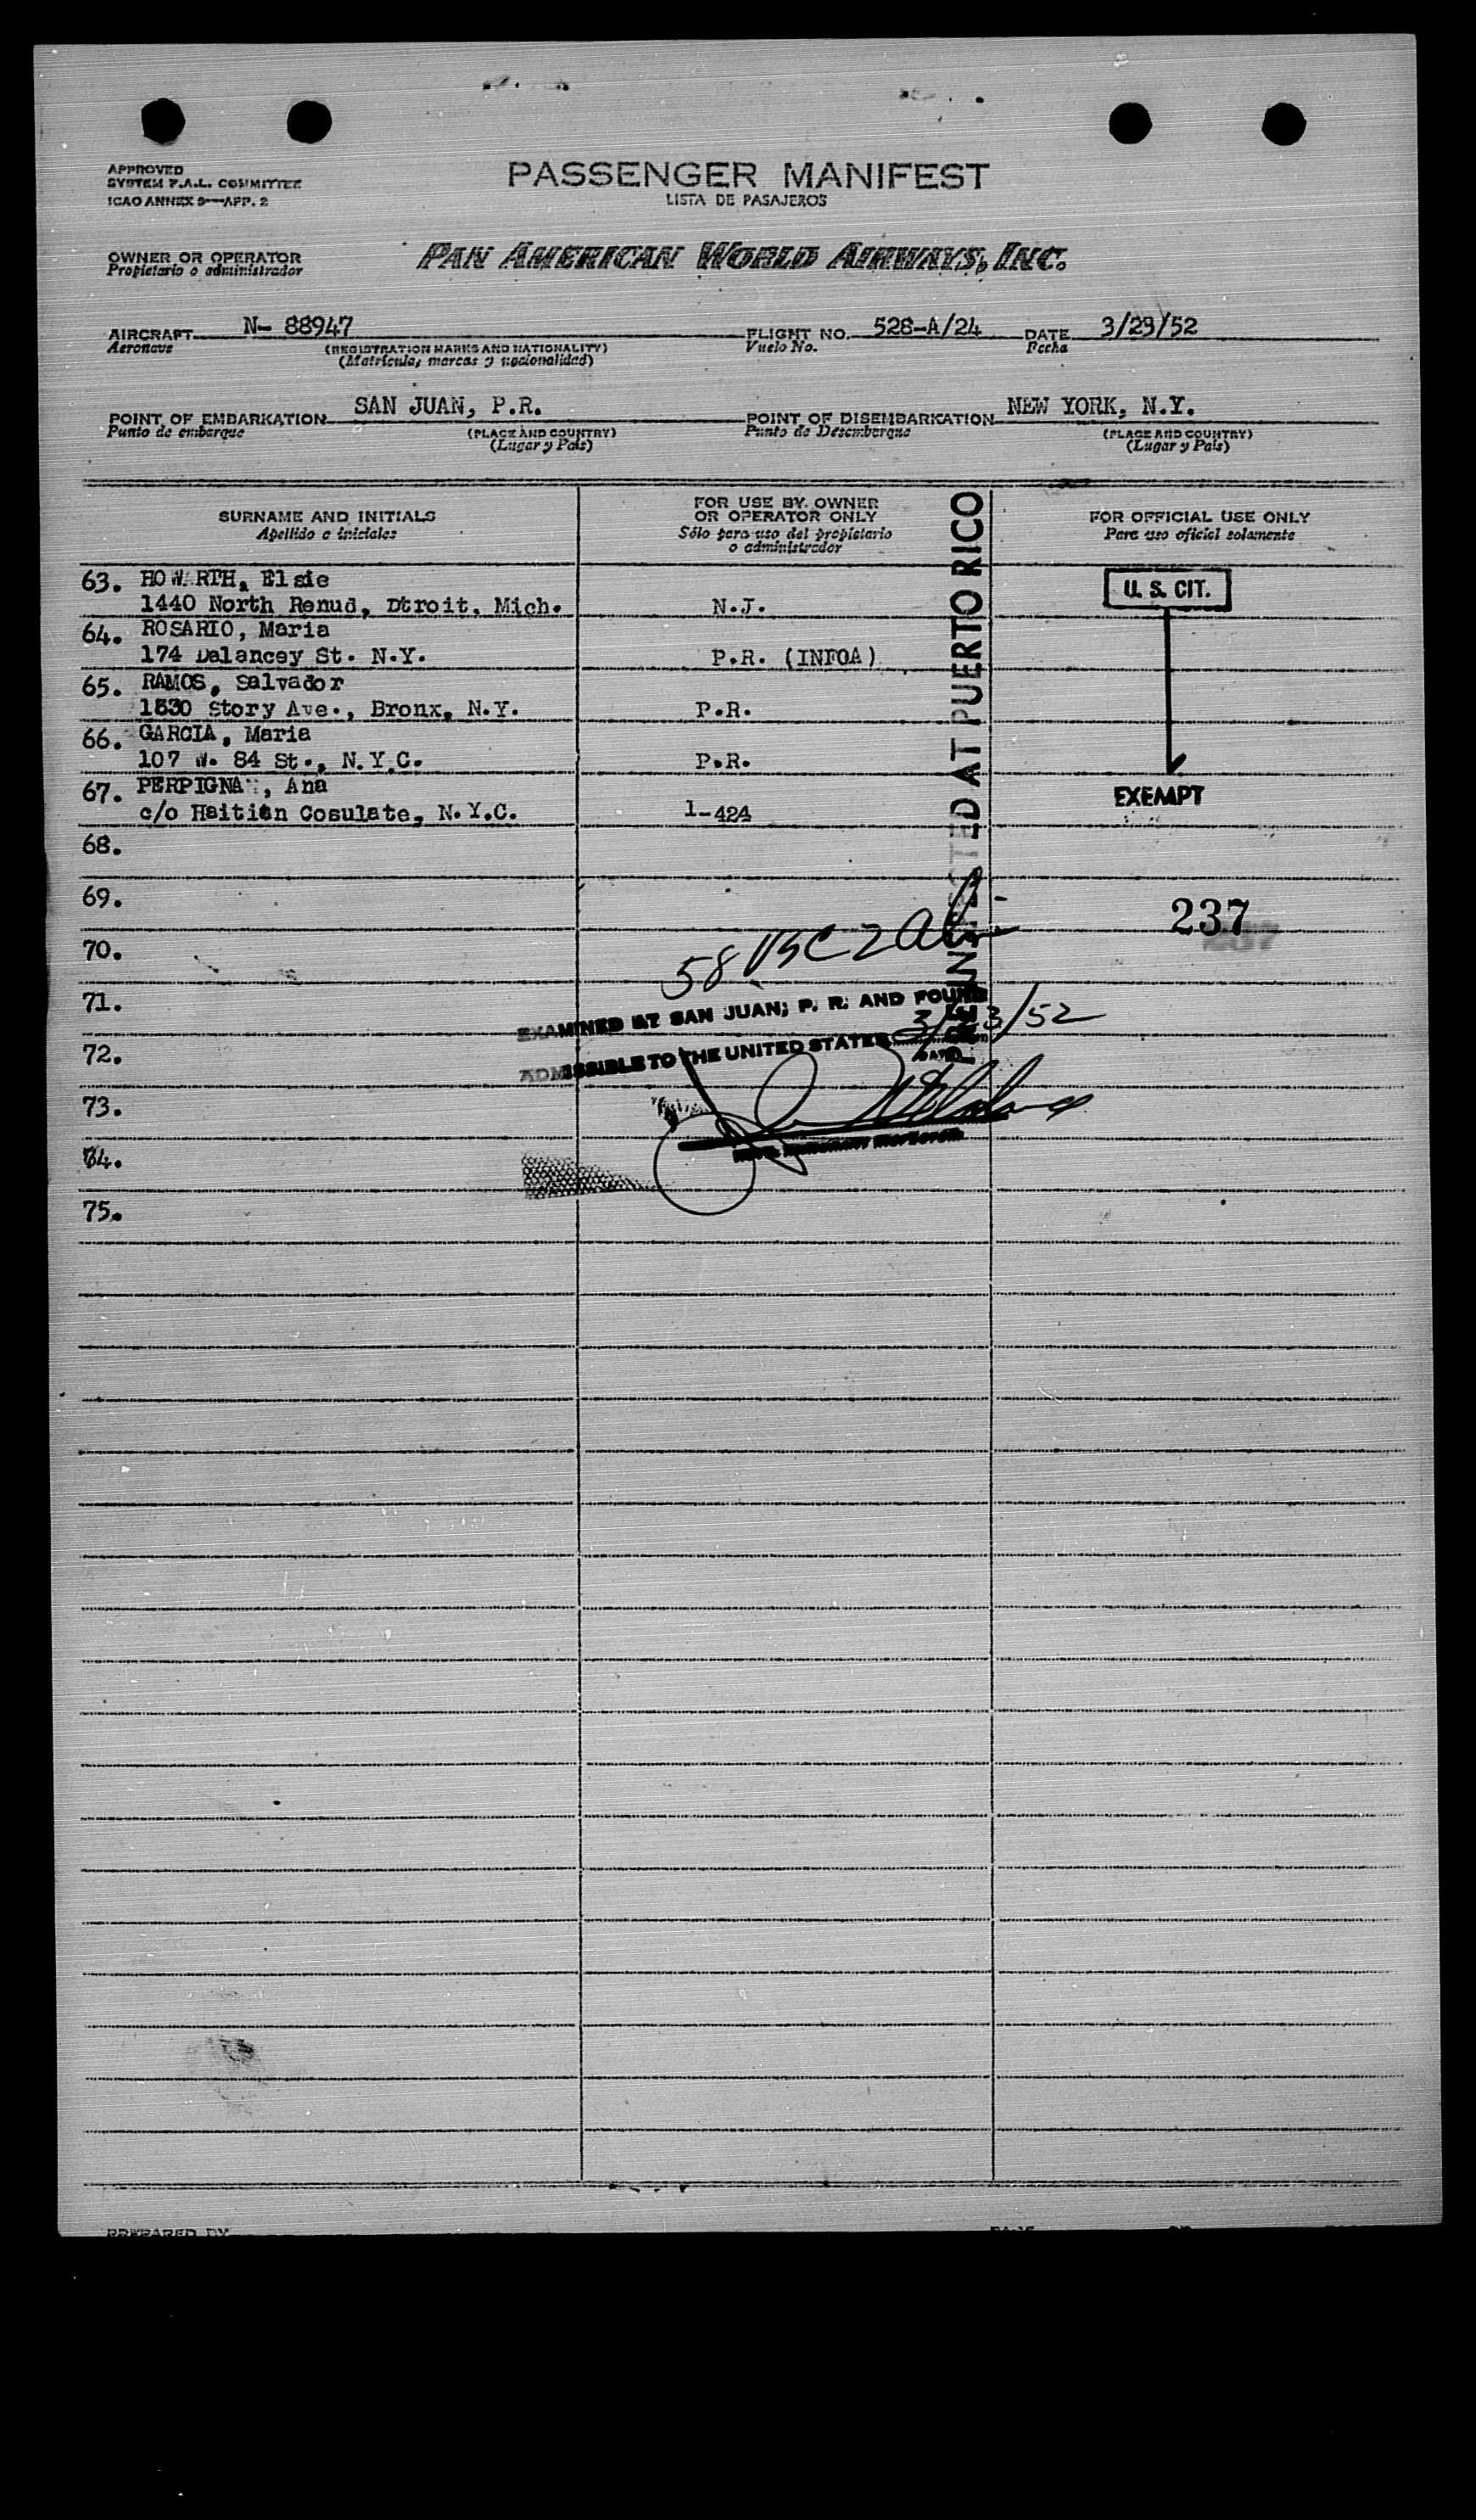 APPROVED
SYSTEM F.A.L. COMMITTEE
ICAO ANNEX 9—APP. 2
PASSENGER MANIFEST
LISTA DE PASAJEROS
OWNER OR OPERATOR
Propietario o administrador
PAN AMERICAN WORLD AIRWAYS, INC.
AIRCRAFT N- 88947 FLIGHT NO. 528-A/24 DATE 3/23/52
Aeronave (REGISTRATION MARKS AND NATIONALITY) Vuelo No. Fecha
(Matrícula, marcas y nacionalidad)
POINT OF EMBARKATION SAN JUAN, P.R. POINT OF DISEMBARKATION NEW YORK, N.Y.
Punto de embarque (PLACE AND COUNTRY) Punto de Desembarque (PLACE AND COUNTRY)
(Lugar y País) (Lugar y País)
SURNAME AND INITIALS
Apellido e iniciales
FOR USE BY OWNER
OR OPERATOR ONLY
Sólo para uso del propietario
o administrador
FOR OFFICIAL USE ONLY
Para uso oficial solamente
63. HOW RTH, Elsie
1440 North Renud, Dtroit, Mich. N.J.
U. S. CIT.
64. ROSARIO, Maria
174 Delancey St. N.Y. P.R. (INFOA)
65. RAMOS, Salvador
1530 Story Ave., Bronx, N.Y. P.R.
66. GARCIA, Maria
107 W. 84 St., N.Y.C. P.R.
67. PERPIGNA , Ana
c/o Haitian Cosulate, N.Y.C. 1-424
EXEMPT
AT PUERTO RICO
68.
69.
237
70.
58
71.
EXAMINED AT SAN JUAN, P. R. AND FOUND
72.
ADMISSIBLE TO THE UNITED STATES 3/23/52
73.
74.
75.
PREPARED BY